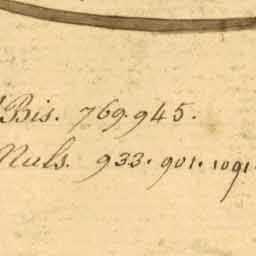 Bis. 769.945.
Nuls. 933. 901. 1091